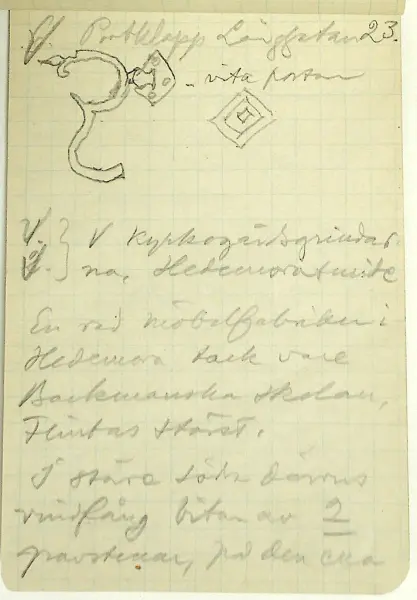 V. Portklapp Långgatan 23.
- vita porten
V. } V kyrkogårdsgrindar-
V. } na, Hedemorasmide
En rad möbelfabriker i
Hedemora tack vare
Backmanska skolan,
Flintas störst.
I större södra dörrens
vindfång bitar av 2
gravstenar, på den ena